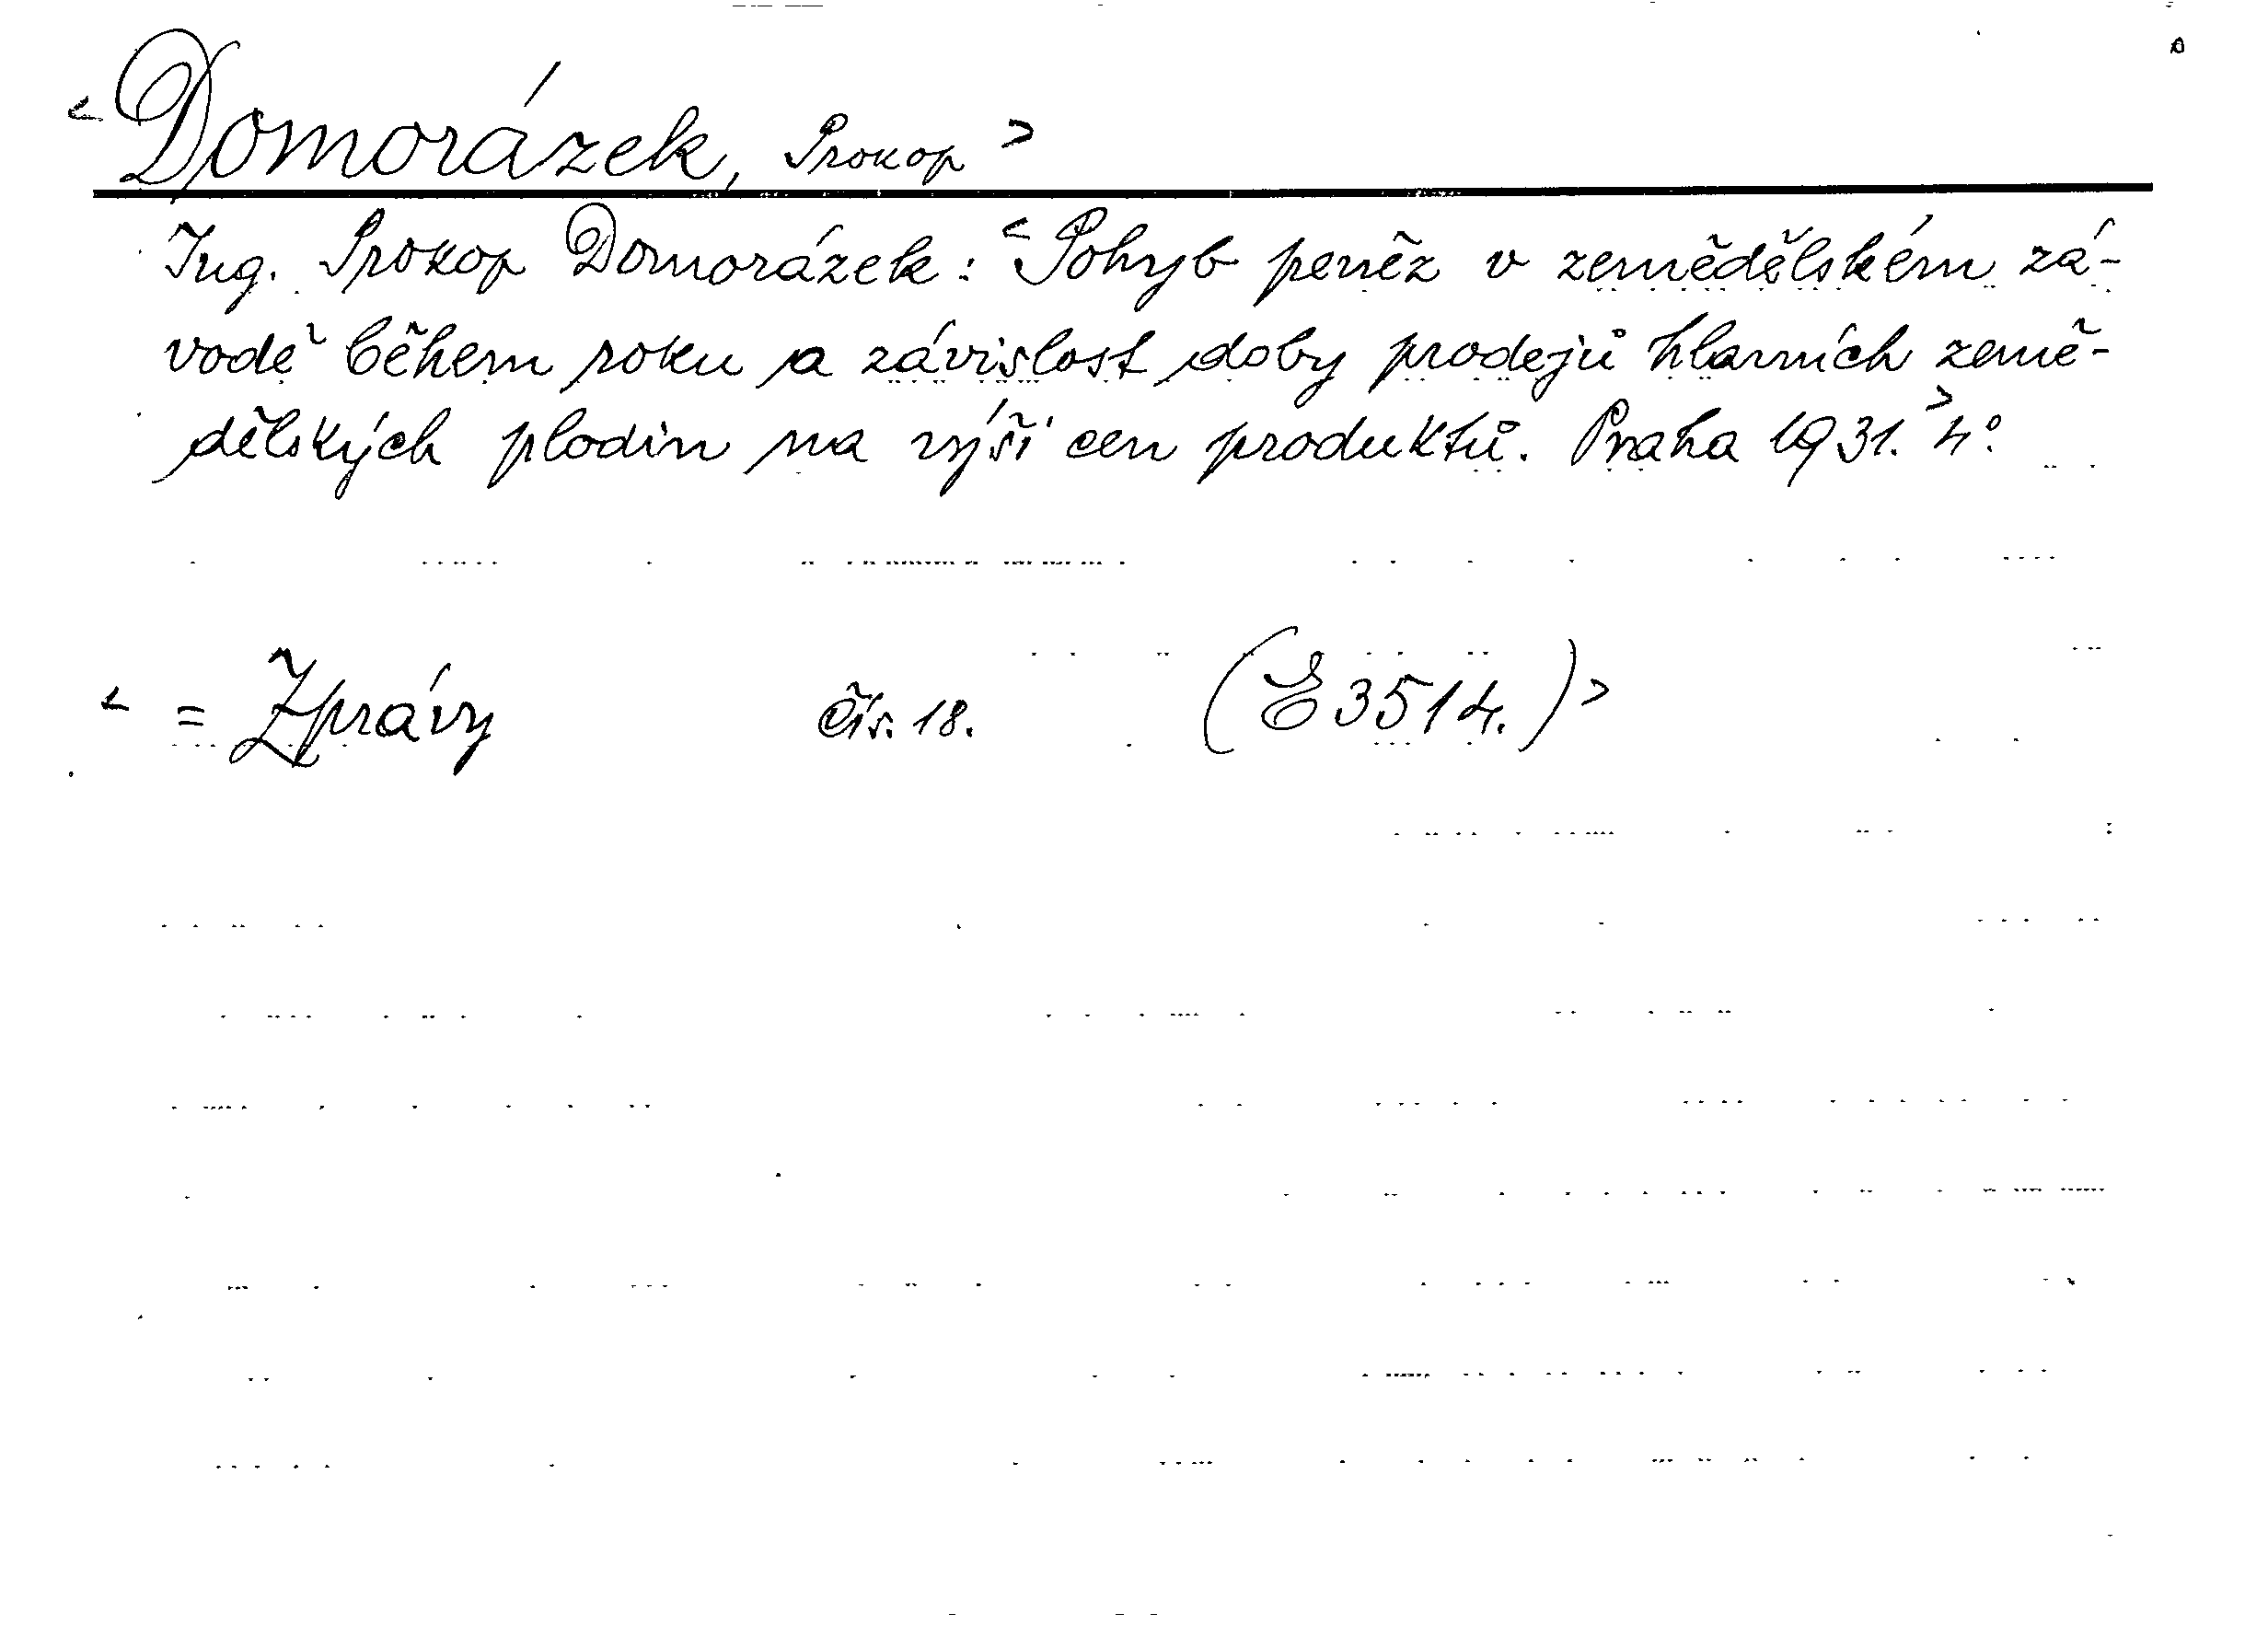 < Domorázek, Prokop >
Ing. Prokop Domorázek: < Pohyb peněz v zemědělském zá-
vodě během roku a závislost doby prodejů hlavních země-
dělských plodin na výši cen produktů. Praha 1931. > 4°.
< = Zprávy čís. 18. (E 3514.) >